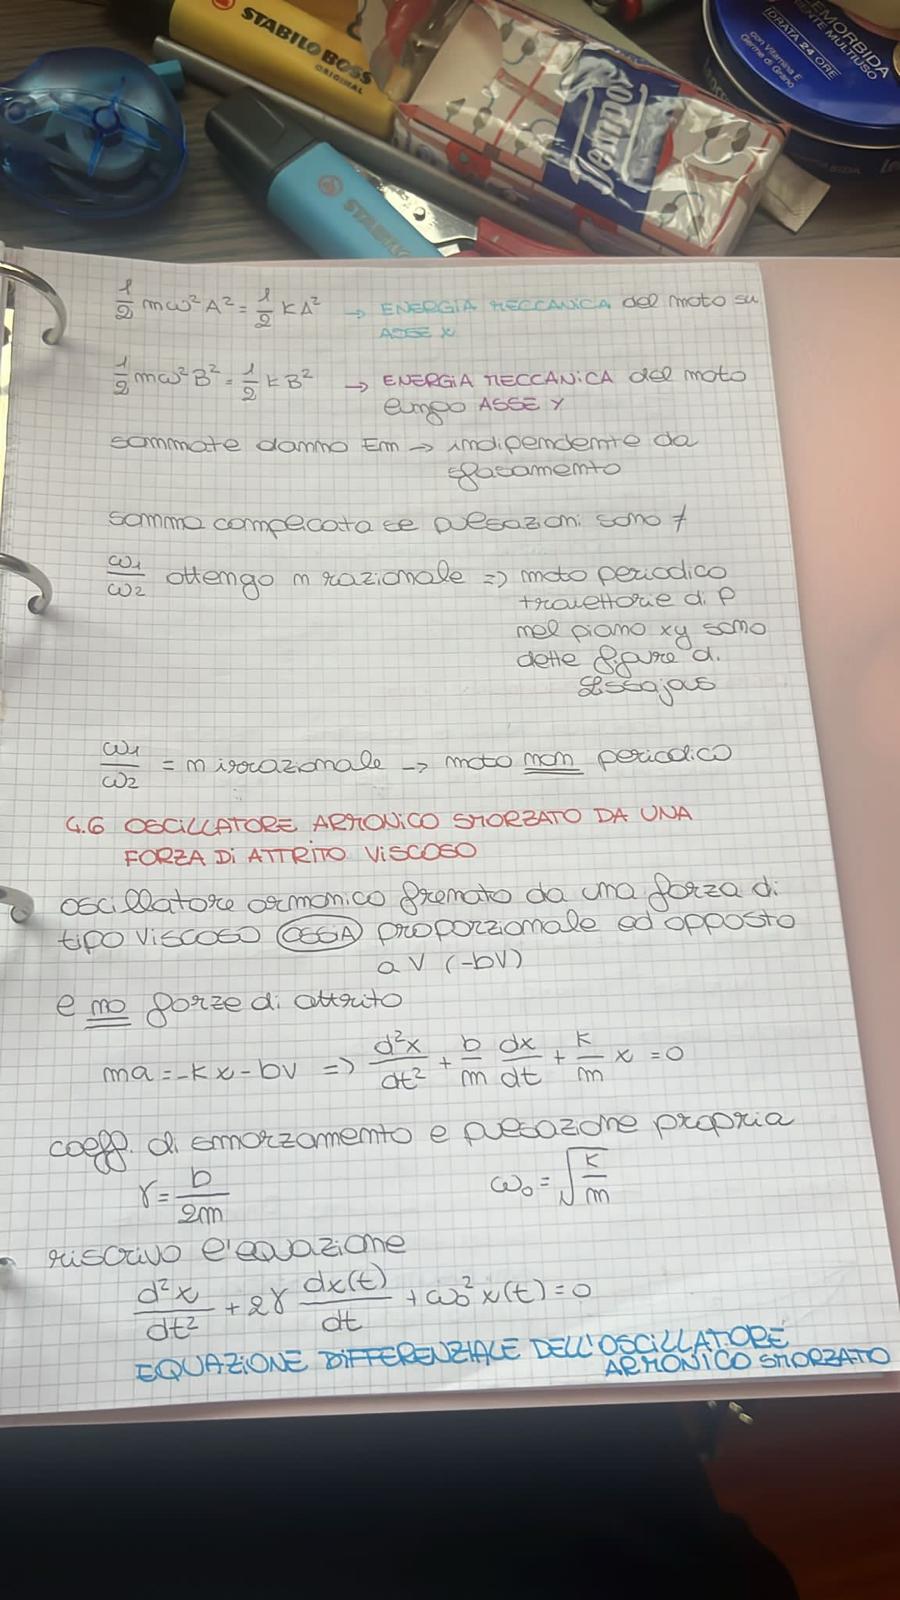 STABILO BOSS
ORIGINAL
STABILO
Tempo
MORBIDA
IDRATA 24 ORE
con Vitamina E
Germe di Grano
1/2 mω²A² = 1/2 kA² → ENERGIA MECCANICA del moto su
ASSE X
1/2 mω²B² = 1/2 kB² → ENERGIA MECCANICA del moto
lungo ASSE Y
sommate danno Em → indipendente da
sfasamento
somma complicata se pulsazioni sono ≠
ω1/ω2 ottengo n razionale => moto periodico
traiettorie di P
nel piano xy sono
dette figure di
Lissajous
ω1/ω2 = n irrazionale → moto non periodico
4.6 OSCILLATORE ARMONICO SMORZATO DA UNA
FORZA DI ATTRITO VISCOSO
oscillatore armonico frenato da una forza di
tipo viscoso OSSIA proporzionale ed opposto
a V (-bV)
e no forze di attrito
ma = -kx - bv => d²x/dt² + b/m dx/dt + k/m x = 0
coeff. di smorzamento e pulsazione propria
γ = b/2m ω0 = √(k/m)
riscrivo l'equazione
d²x/dt² + 2γ dx(t)/dt + ω0² x(t) = 0
EQUAZIONE DIFFERENZIALE DELL'OSCILLATORE
ARMONICO SMORZATO